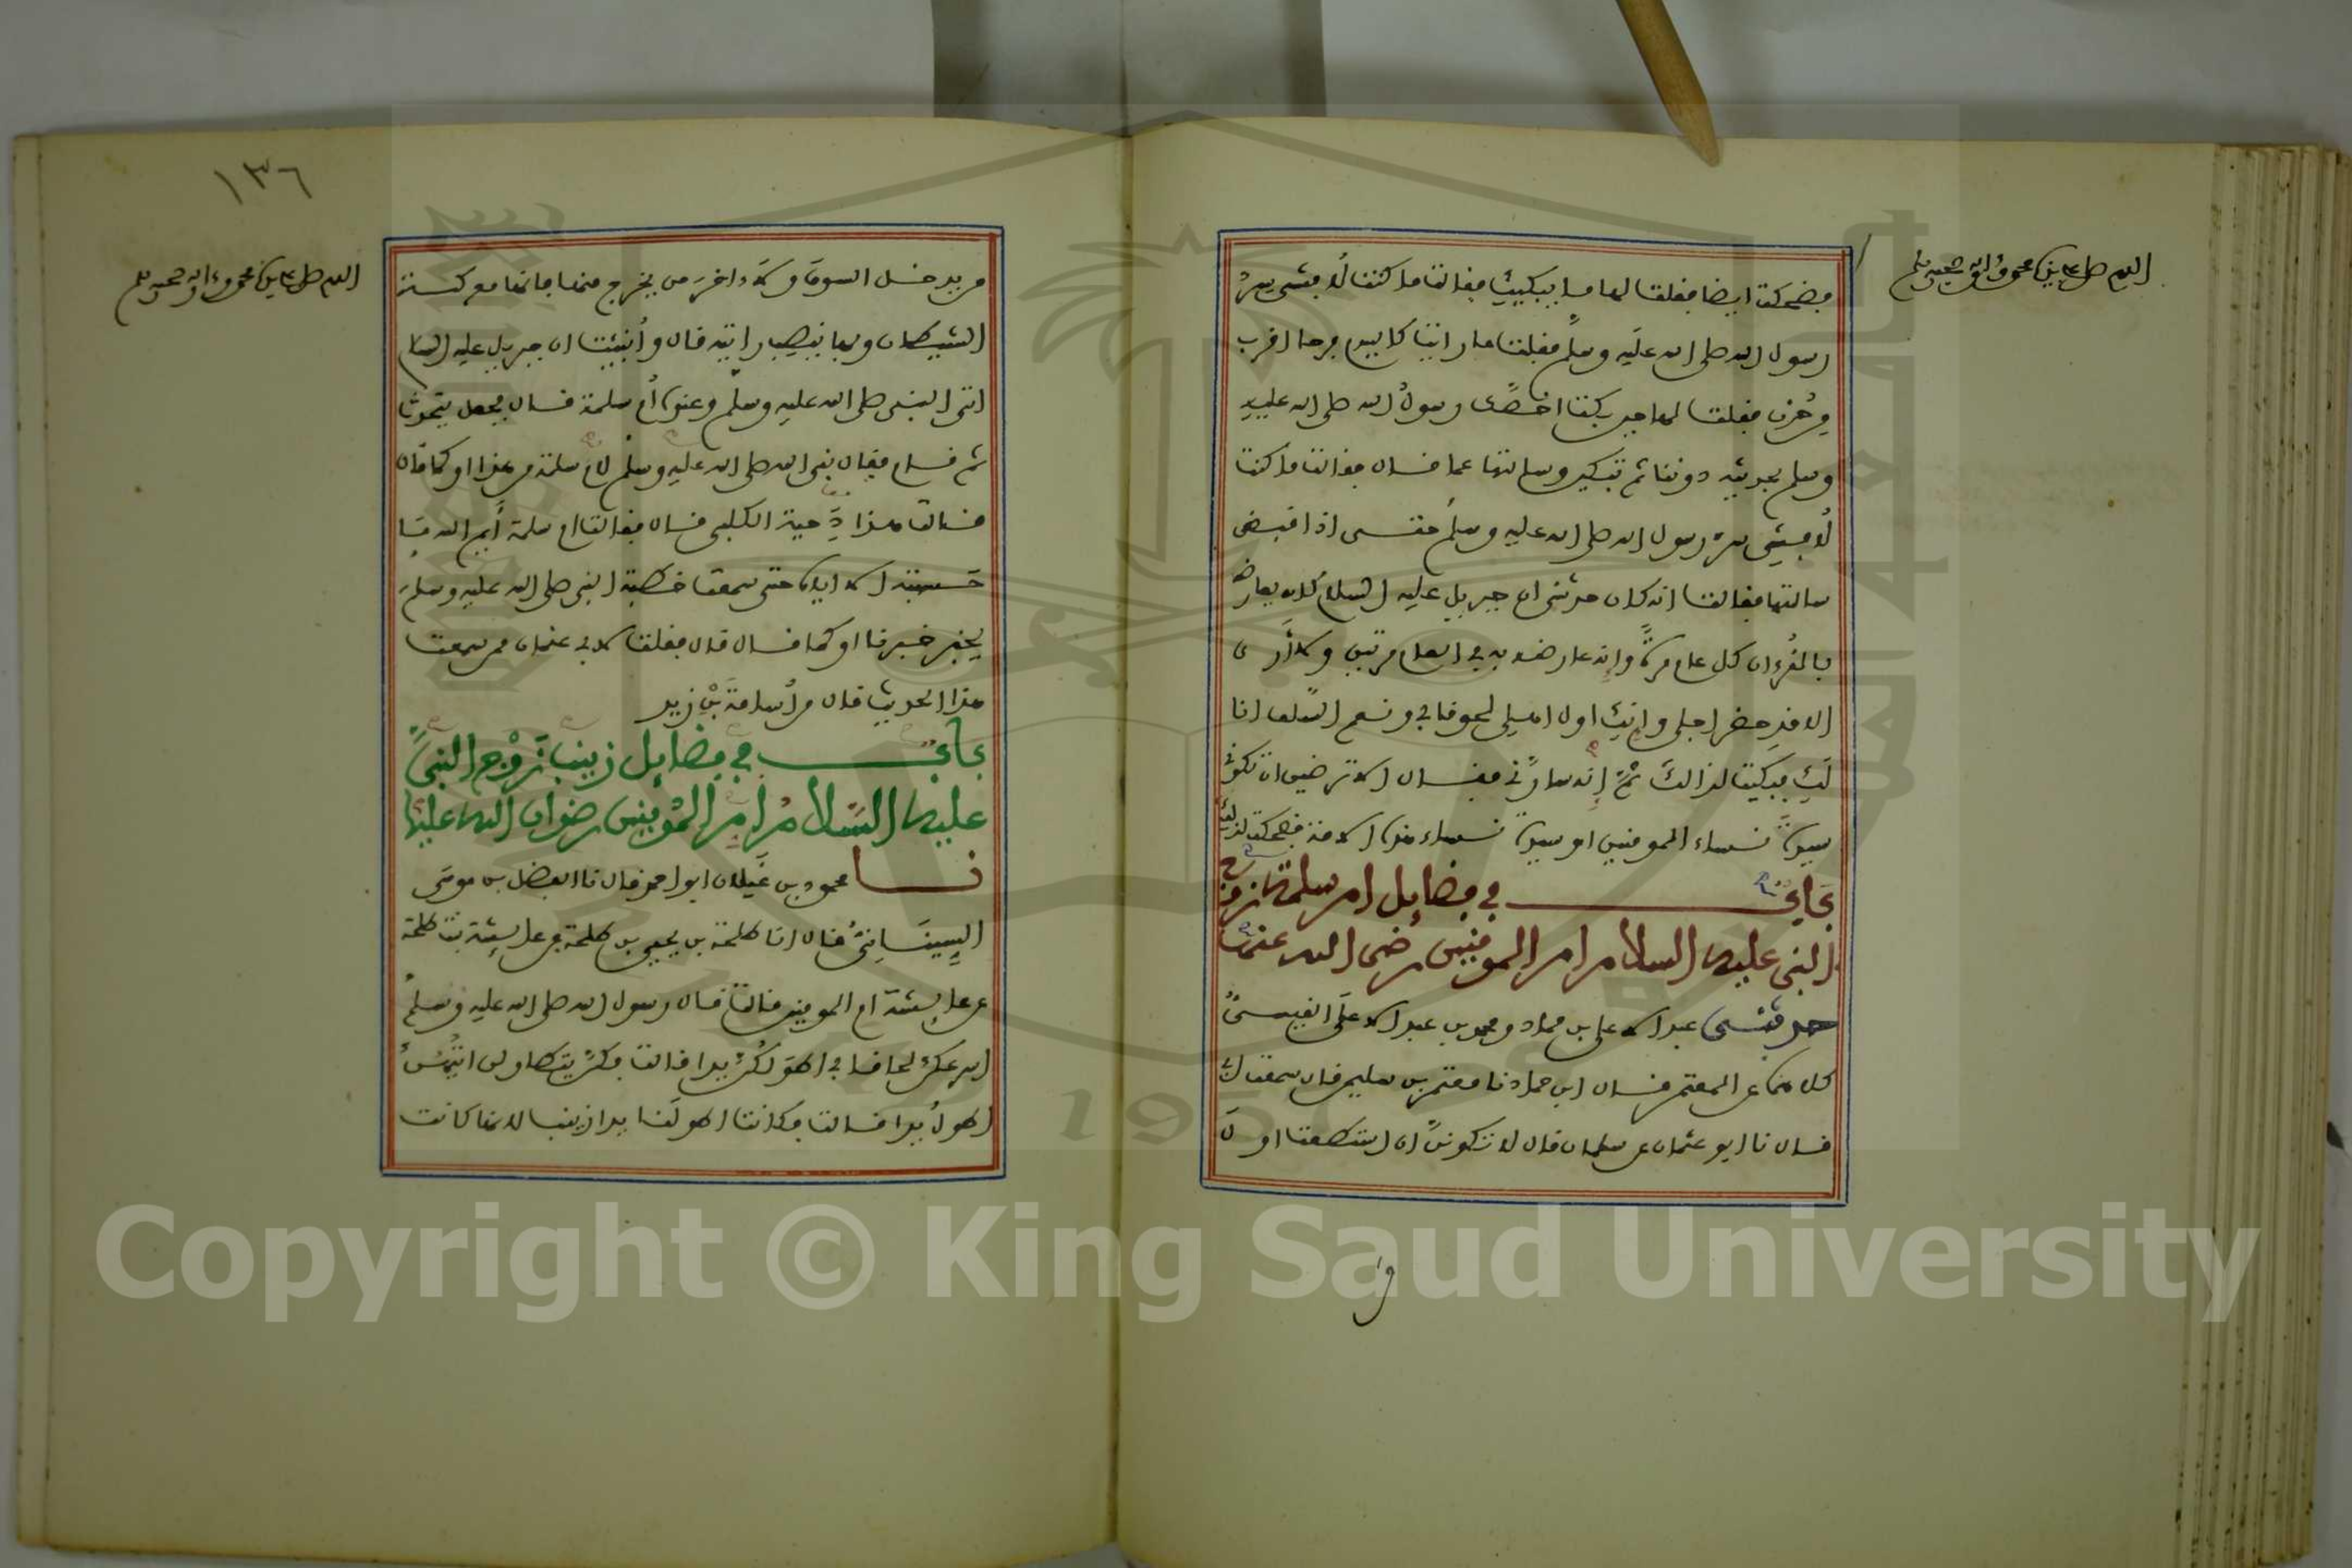 اللهم صل على سيدنا محمد وءاله وصحبه وسلم
فضحكت ايضا فقلت لها ما يبكيك فقالت ما كنت لافشي سر
رسول الله صلى الله عليه وسلم فقلت ما رايت كاليوم فرحا اقرب
من حزن فقلت لها حين بكت اخصك رسول الله صلى الله عليه
وسلم بحديثه دوننا ثم تبكين وسالتها عما قال فقالت ما كنت
لافشي سر رسول الله صلى الله عليه وسلم حتى اذا قبض
سالتها فقالت انه كان حدثني ان جبريل عليه السلام كان يعارضه
بالقرءان كل عام مرة وانه عارضه به في العام مرتين ولا أرى
الا قد حضر اجلي وانك اول اهلي لحوقا بي ونعم السلف انا
لك فبكيت لذالك ثم إنه سارني فقال الا ترضين ان تكوني
سيدة نساء المومنين او سيدة نساء هذه الامة فضحكت لذلك
باب في فضايل ام سلمة زوج
النبي عليه السلام ام المومنين رضي الله عنها
حدثني عبد الاعلى بن حماد ومحمد بن عبد الاعلى القيسي
كلاهما عن المعتمر قال ابن حماد نا معتمر بن سليمن قال سمعت ابي
قال نا ابو عثمان عن سلمان قال لا تكونن ان استطعت اول
و
١٣٦
اللهم صل على سيدنا محمد وءاله وصحبه وسلم
من يدخل السوق ولا ءاخر من يخرج منها فانها معركة
الشيطان وبها ينصب رايته قال وأنبئت ان جبريل عليه السلام
اتى النبي صلى الله عليه وسلم وعنده أم سلمة قال فجعل يتحدث
ثم قام فقال نبي الله صلى الله عليه وسلم لام سلمة من هذا او كما قال
قالت هذا دحية الكلبي قال فقالت ام سلمة أيم الله ما
حسبته الا اياه حتى سمعت خطبة النبي صلى الله عليه وسلم
يخبر خبرنا او كما قال قال فقلت لابي عثمان ممن سمعت
هذا الحديث قال من أسامة بن زيد
باب في فضايل زينب زوج النبي
عليه السلام ام المومنين رضوان الله عليها
نا محمود بن غيلان ابو احمد قال نا الفضل بن موسى
السيناني قال انا طلحة بن يحيى بن طلحة عن عايشة بنت طلحة
عن عايشة ام المومنين قالت قال رسول الله صلى الله عليه وسلم
اسرعكن لحاقا بي اطولكن يدا قالت فكن يتطاولن ايتهن
اطول يدا قالت فكانت اطولنا يدا زينب لانها كانت
Copyright © King Saud University